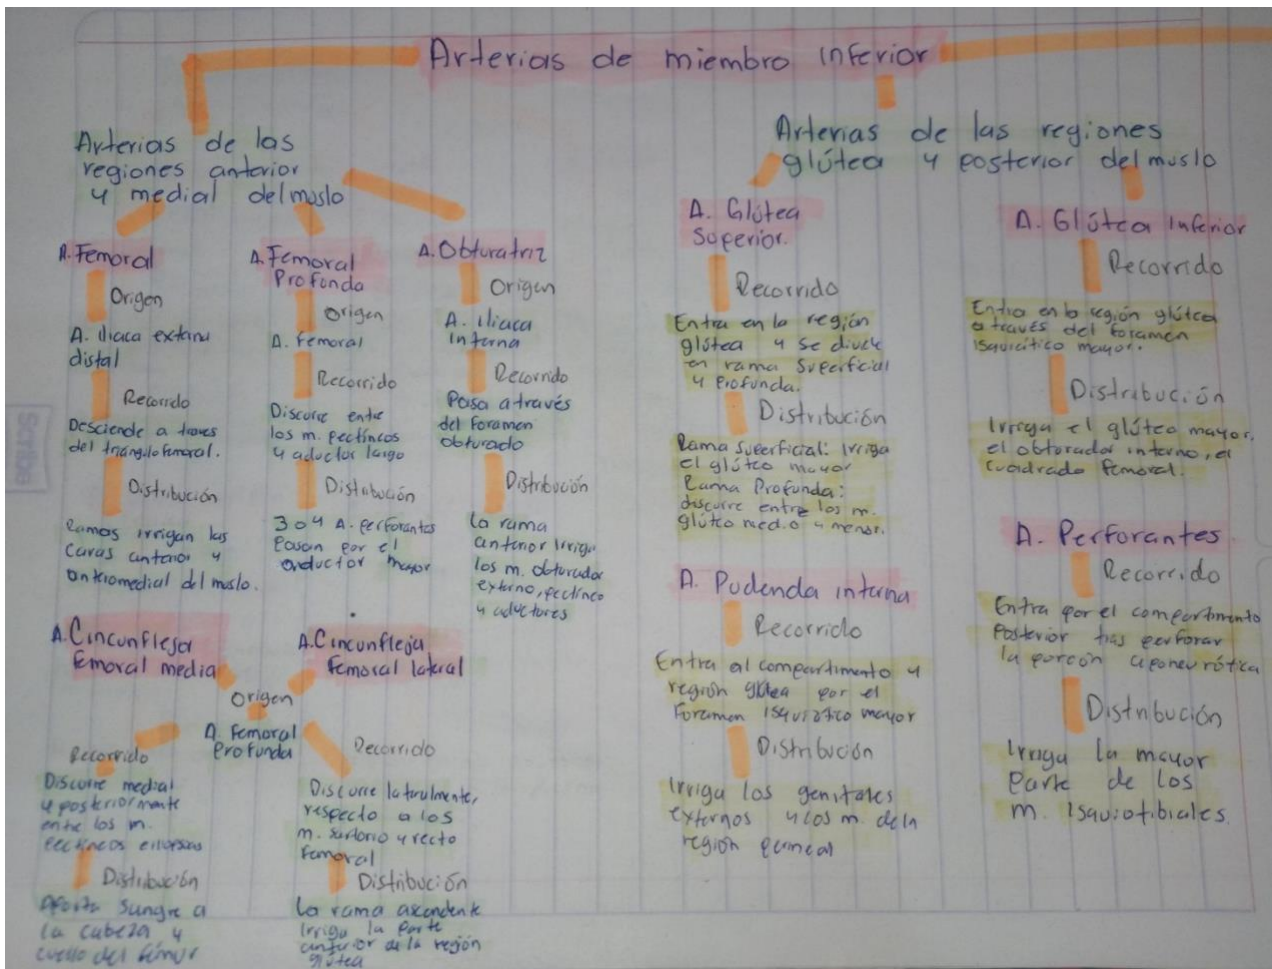 Arterias de miembro inferior
Arterias de las
regiones anterior
y medial del muslo
A. Femoral
Origen
A. iliaca externa
distal
Recorrido
Desciende a traves
del triangulo femoral.
Distribución
Ramas irrigan las
Caras anterior y
anteromedial del muslo.
A. Femoral
Profunda
Origen
A. Femoral
Recorrido
Discurre entre
los m. pectineos
y aductor largo
Distribución
3 o 4 A. perforantes
Pasan por el
aductor mayor
A. Obturatriz
Origen
A. iliaca
Interna
Recorrido
Pasa a través
del foramen
obturado
Distribución
La rama
anterior irriga
los m. obturador
externo, pectineo
y aductores
A. Cincunfleja
femoral media
A. Cincunfleja
femoral lateral
Origen
A. Femoral
Profunda
Recorrido
Discurre medial
y posteriormente
entre los m.
pectineos
Distribución
Aporta sangre a
la cabeza y
cuello del fémur
Recorrido
Discurre lateralmente,
respecto a los
m. sartorio y recto
femoral
Distribución
La rama ascendente
Irriga la parte
anterior de la región
glútea
Arterias de las regiones
glútea y posterior del muslo
A. Glútea
Superior.
Recorrido
Entra en la región
glútea y se divide
en rama Superficial
y Profunda.
Distribución
Rama Superficial: Irriga
el glúteo mayor
Rama Profunda:
discurre entre los m.
glúteo medio y menor.
A. Pudenda interna
Recorrido
Entra al compartimento y
región glútea por el
Foramen isquiático mayor
Distribución
Irriga los genitales
externos y los m. de la
región perineal
A. Glútea Inferior
Recorrido
Entra en la región glútea
a través del foramen
mayor.
Distribución
Irriga el glúteo mayor,
el obturador interno, el
Cuadrado femoral.
A. Perforantes.
Recorrido
Entra por el compartimento
Posterior tras perforar
la porción aponeurótica
Distribución
Irriga la mayor
Parte de los
m. isquiotibiales.
Scribe